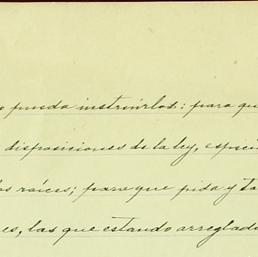 o pueda instruirlos: para qu
disposiciones de la ley, especi
os raíces; para que pida y ta
es, las que estando arreglad